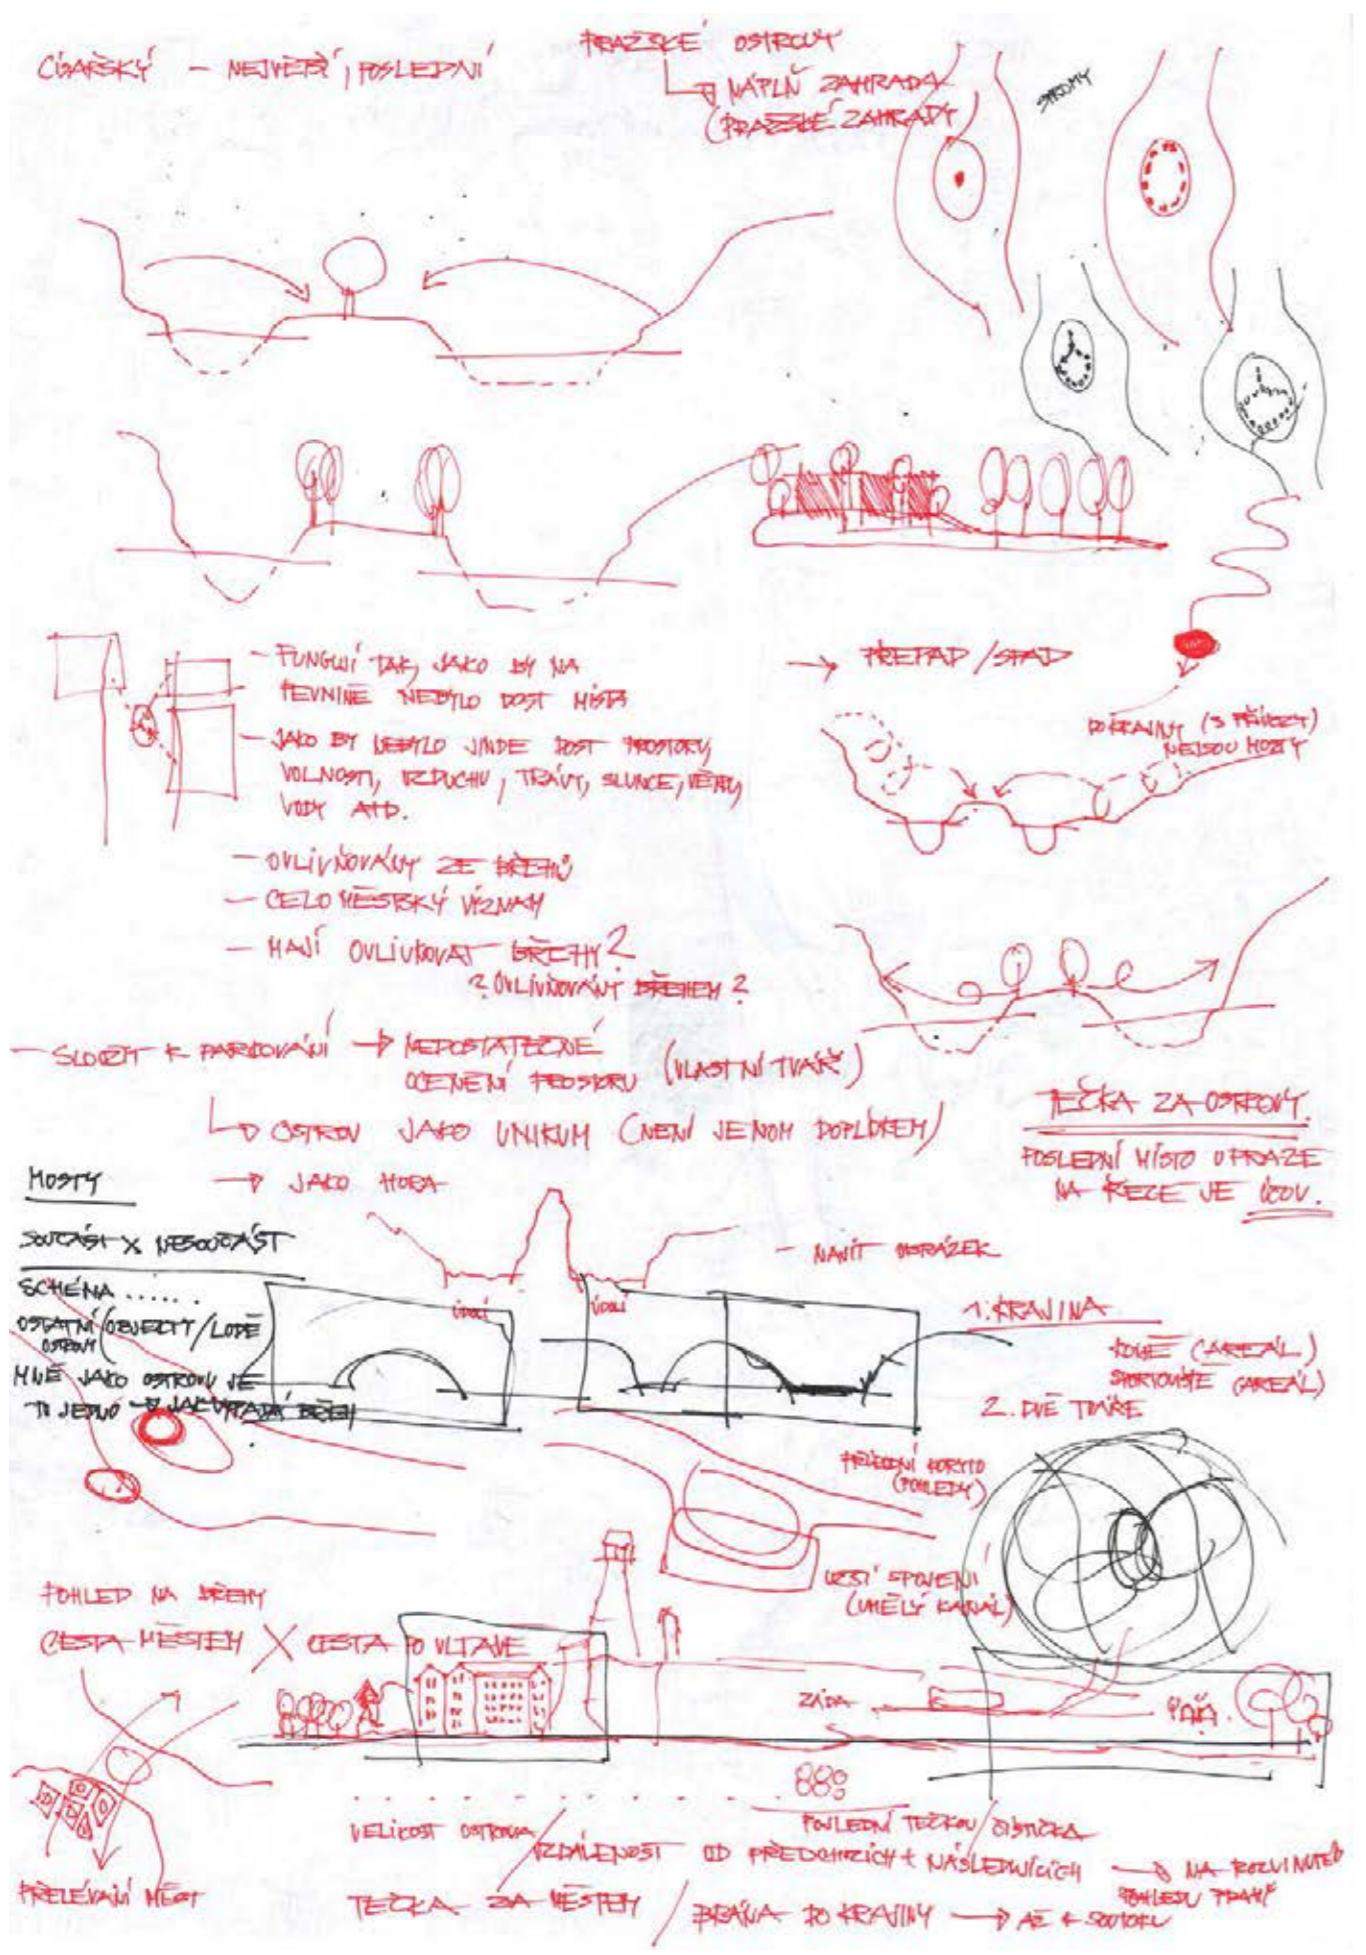 CÍSAŘSKÝ - NEJVĚTŠÍ, POSLEDNÍ
PRAŽSKÉ OSTROVY
NÁPLŇ ZAHRADA
(PRAŽSKÉ ZAHRADY
STROMY
- FUNGUJÍ TAK, JAKO BY NA
PEVNINĚ NEBYLO DOST MÍSTA
- JAKO BY NEBYLO JINDE DOST PROSTORU,
VOLNOSTI, VZDUCHU, TRÁVY, SLUNCE, VĚTRU,
VODY ATD.
- OVLIVŇOVÁNY ZE BŘEHŮ
- CELOMĚSTSKÝ VÝZNAM
- MAJÍ OVLIVŇOVAT BŘEHY?
? OVLIVŇOVÁNY BŘEHEM ?
→ PŘEPAD / SPAD
DO KRAJINY (S PŘÍVOZY)
NEJSOU MOSTY
- SLOUŽIT K PARKOVÁNÍ → NEDOSTATEČNÉ
OCENĚNÍ PROSTORU (VLASTNÍ TVÁŘ)
OSTROV JAKO UNIKUM (NENÍ JENOM DOPLŇKEM)
→ JAKO HORA
TEČKA ZA OSTROVY.
POSLEDNÍ MÍSTO V PRAZE
NA ŘECE JE ÚČOV.
MOSTY
SOUČÁST X NESOUČÁST
SCHÉMA ......
OSTATNÍ (OBJEKTY / LODĚ
OSTROVY
MNĚ JAKO OSTROVU JE
TO JEDNO → JAK VYPADÁ BŘEH
ÚDOLÍ
ÚDOLÍ
- NAJÍT OBRÁZEK
1. KRAJINA
KONĚ (AREÁL)
SPORTOVIŠTĚ (AREÁL)
2. DVĚ TVÁŘE
PŘÍRODNÍ KORYTO
(POHLEDY)
UŽŠÍ SPOJENÍ
(UMĚLÝ KANÁL)
POHLED NA BŘEHY
CESTA MĚSTEM X CESTA PO VLTAVĚ
ZÁĎ
PŘELÉVÁNÍ MĚST
VELIKOST OSTROVA / VZDÁLENOST OD PŘEDCHOZÍCH + NÁSLEDUJÍCÍCH → NA ROZVINUTÉM
POHLEDU PRAHY
POSLEDNÍ TEČKOU / ČISTIČKA
TEČKA ZA MĚSTEM / BRÁNA DO KRAJINY → AŽ K SOUTOKU